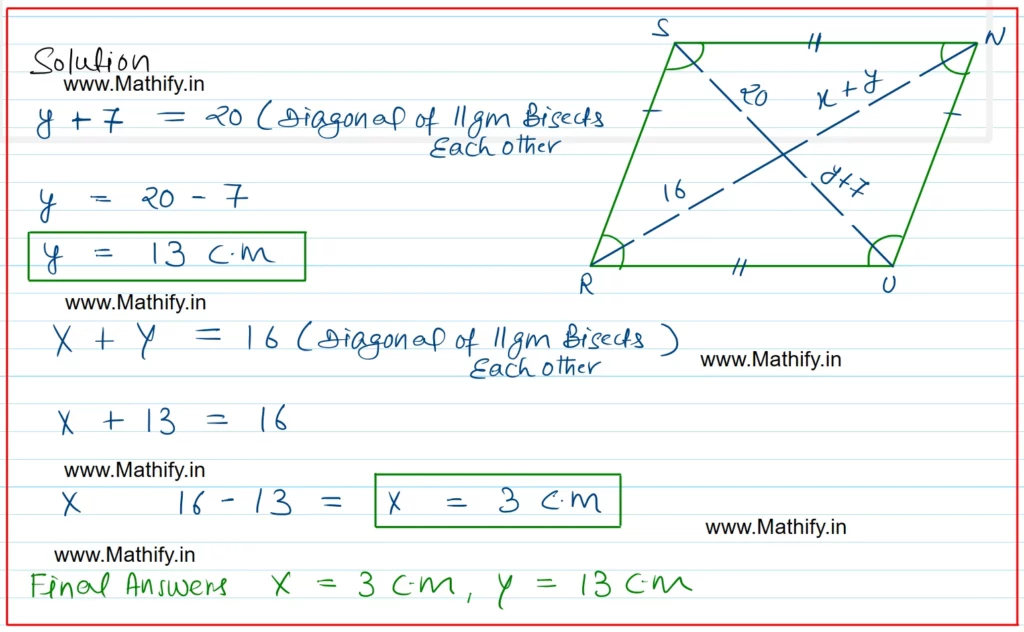 Solution
www.Mathify.in
y + 7 = 20 (Diagonal of llgm Bisects
Each other
y = 20 - 7
y = 13 c.m
www.Mathify.in
X + Y = 16 (Diagonal of llgm Bisects )
Each other
www.Mathify.in
X + 13 = 16
www.Mathify.in
X 16 - 13 = X = 3 c.m
www.Mathify.in
www.Mathify.in
Final Answers X = 3 c.m, Y = 13 c.m
S
N
20
x + y
16
y+7
R
U